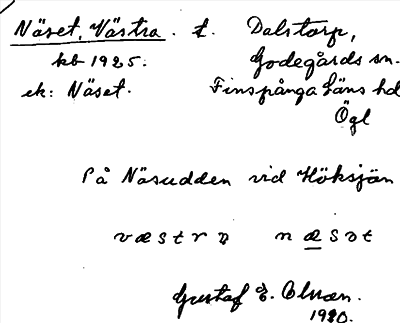 Näset, Västra. t. Dalstorp,
kb 1925. Godegårds sn.
ek: Näset. Finspånga Läns hd
Ögl
På Näsudden vid Höksjön
væstrə næsət
Gustaf E. Olsson.
1920.